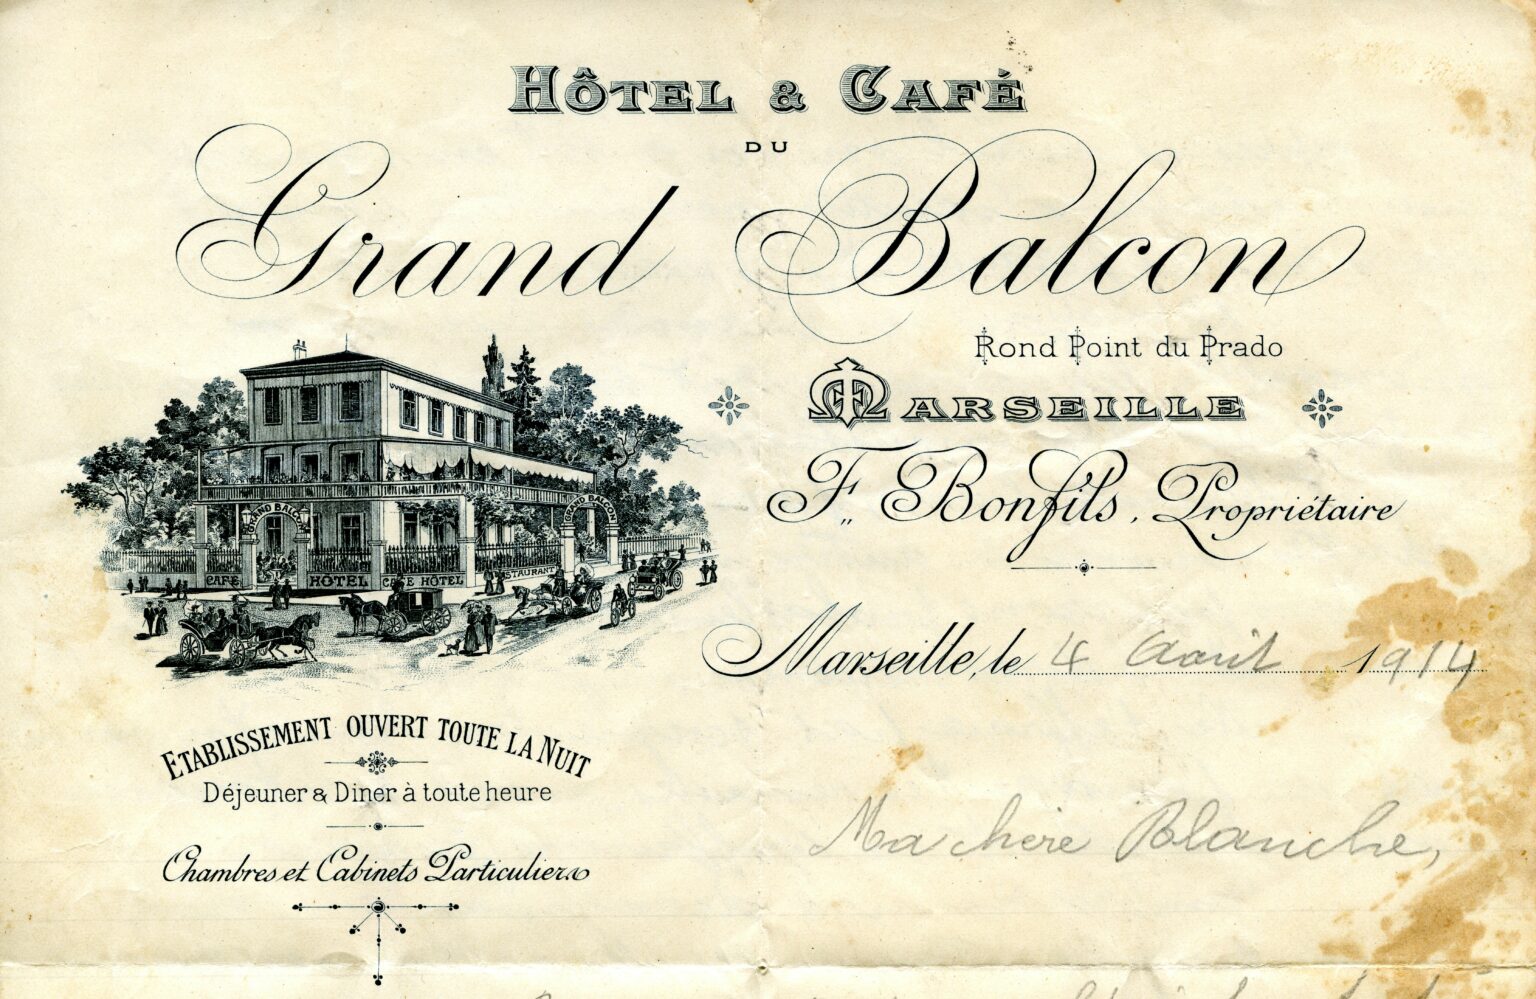 HÔTEL & CAFÉ
DU
Grand Balcon
Rond Point du Prado
MARSEILLE
F. Bonfils, Propriétaire
GRAND BALCON
GRAND BALCON
CAFÉ
HÔTEL
CAFE HÔTEL
RESTAURANT
Marseille, le 4 Avril 1914
ETABLISSEMENT OUVERT TOUTE LA NUIT
Déjeuner & Diner à toute heure
Chambres et Cabinets Particuliers
Ma chère Blanche,